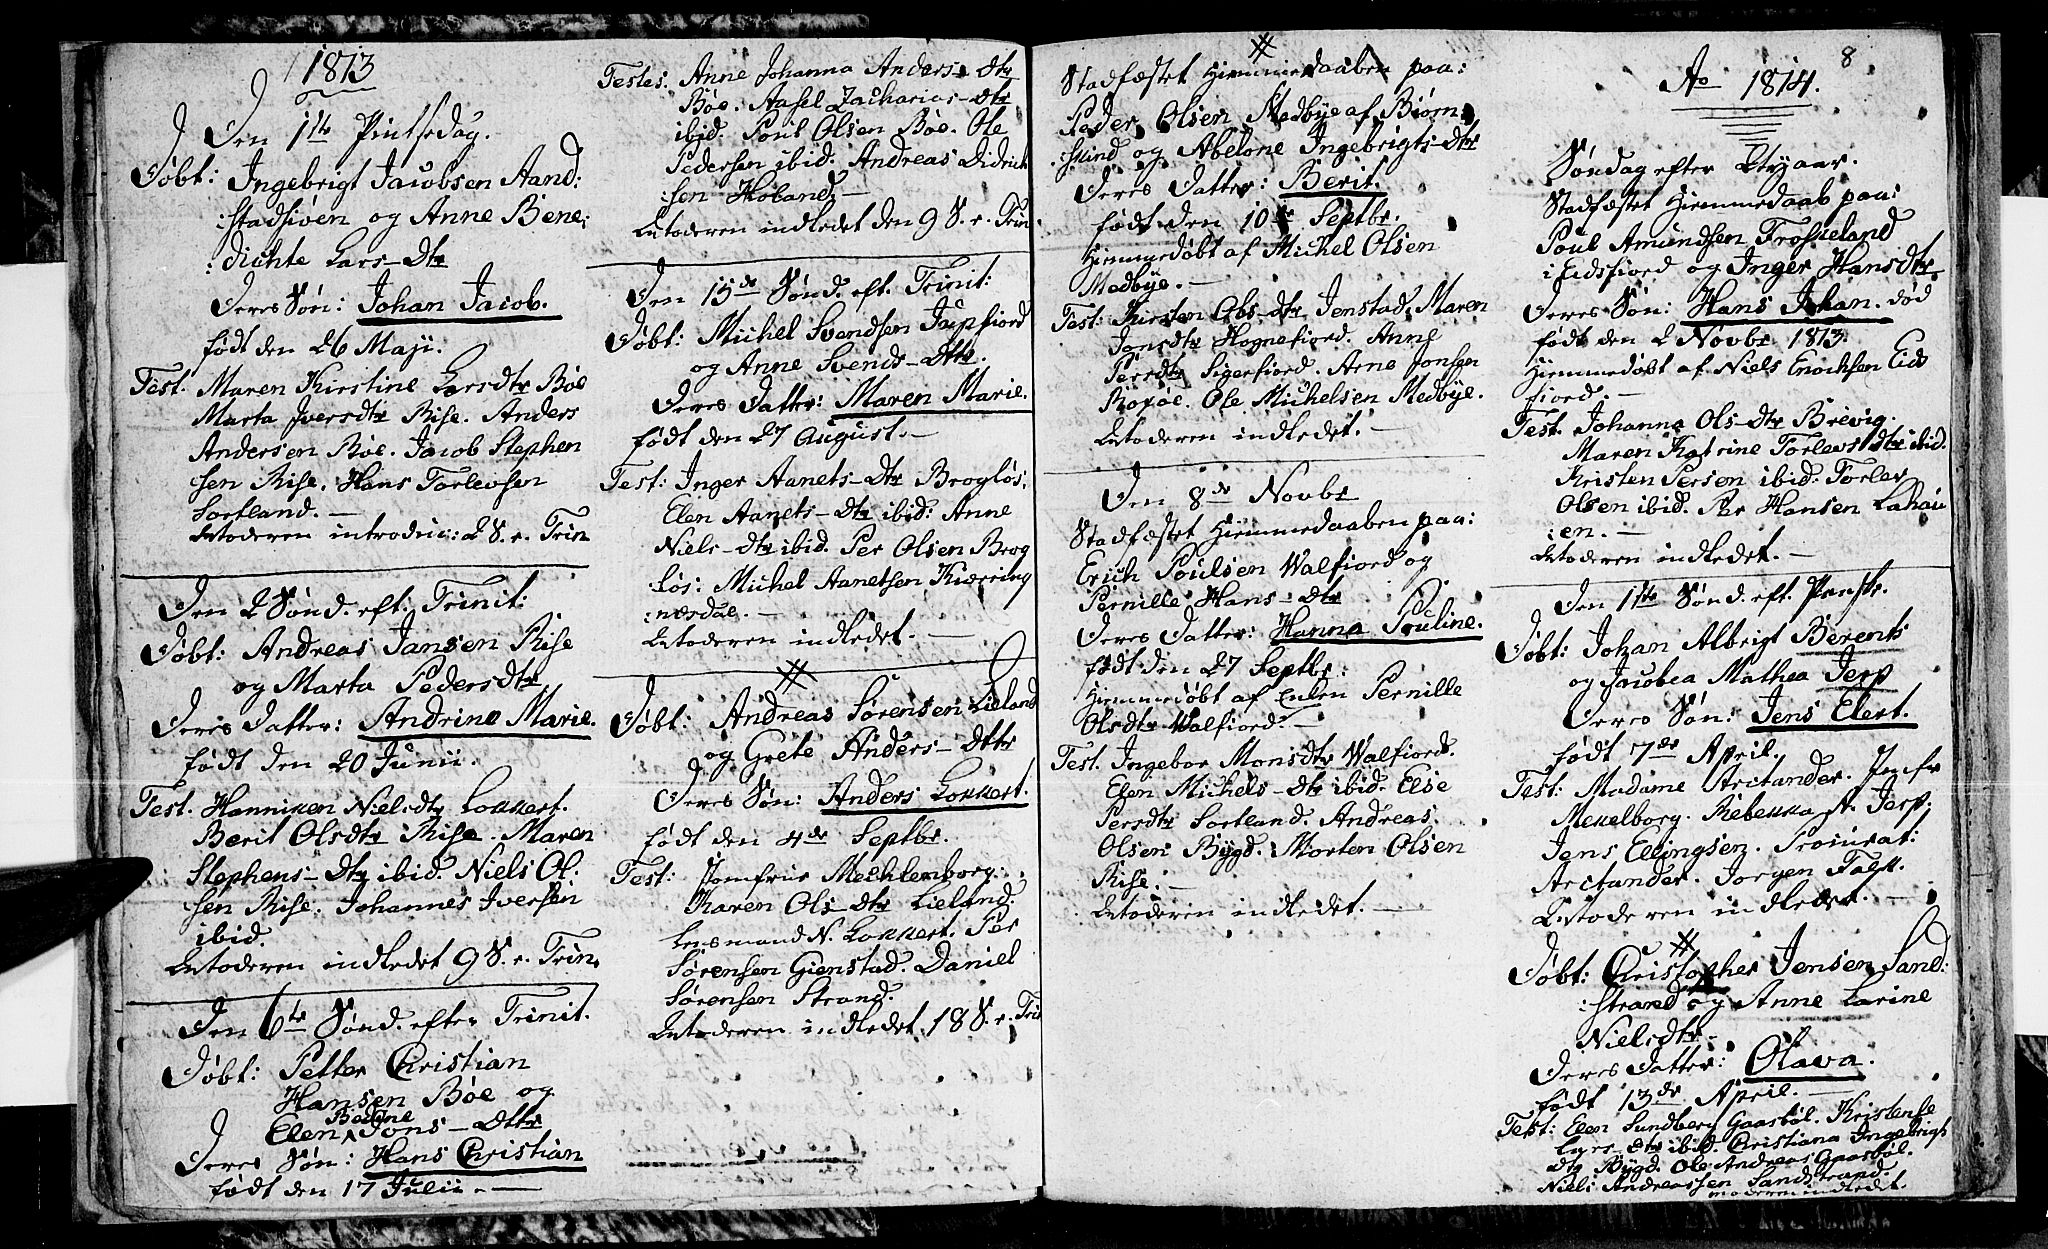 1813
Den 1te Pintsedag.
Døbt: Ingebrigt Jacobsen Aand:
:stadsiøen og Anne Bene:
:dichte Lars-Dtr
Deres Søn: Johan Jacob.
født den 26 Maji.
Test. Maren Kirstine Larsdtr Bøe
Marta Iversdtr Rise. Anders
Andersen Bøe. Jacob Stephen
sen Rise. Hans Torlevsen
Sortland. —
Moderen introduc: 2 S. e. Trin
Den 2 Sønd. eft. Trinit:
Døbt: Andreas Jansen Rise
og Marta Pedersdtr
Deres Datter: Andrina Marie.
født den 20 Junii. —
Test. Hanniken Nielsdtr Lokkert.
Berit Olsdtr Rise. Maren
Stephens-Dtr ibid. Niels Ol:
sen Rise. Johannes Iversen
ibid.
Moderen indledet 9 S. e. Trin.
Den 6te Sønd. efter Trinit.
Døbt: Petter Christian
Hansen Bøe og
Elen Berthine Jons-Dtr
Deres Søn: Hans Christian
født den 17 Julii. —
Testes. Anne Johanna Anders-Dtr
Bøe. Aasel Zacharias-Dtr
ibid. Poul Olsen Bøe. Ole
Pedersen ibid. Andreas Didrich
sen Holand. —
Moderen indledet den 9 S. e. Trin
Den 15de Sønd. eft. Trinit:
Døbt: Michel Svendsen Jarpfiord
og Anne Svends-Dtr.
Deres Datter: Maren Marie.
født den 27 August. —
Test: Inger Aanets-Dtr Brogløs,
Elen Aanets-Dtr ibid: Anne
Niels-dtr ibid. Per Olsen Brog
løs: Michel Aanetsen Kiærring
:næsdal. —
Moderen indledet. —
#
Døbt: Andreas Sørensen Lieland
og Grete Anders-Dtr
Deres Søn: Anders Lokkert.
født den 4de Septbr.
Test: Jomfrue Mechlenborg.
Karen Ols-Dtr Lieland.
Lensmand N. Lokkert. Per
Sørensen Gienstad. Daniel
Sørensen Strand.
Moderen indledet. 18 S. e. Tri
#
Stadfæstet Hiemmedaaben paa:
Peder Olsen Medbye af Biørn
:skind og Abelone Ingebrigts-Dtr
Deres Datter: Berit.
født den 10de Septbr.
Hiemmedøbt af Michel Olsen
Medbye. —
Test: Kirsten Obs-Dtr Jenstad, Maren
Jonsdtr Hognefiord. Anne
Persdtr Sigerfiord. Arne Jonsen
Roksøe. Ole Michelsen Medbye.
Moderen indledet. —
Den 8de Novbr
Stadfæstet Hiemmedaaben paa:
Erich Poulsen Walfiord og
Pernille Hans-Dtr
Deres Datter: Hanna Pouline.
født den 27 Septbr:
Hiemmedøbt af Enken Pernille
Olsdtr Walfiord. —
Test. Ingebor Monsdtr Walfiord.
Elen Michels-Dtr ibid. Else
Persdtr Sortland. Andreas.
Olsen Bygd. Morten Olsen
Rise. —
Moderen indledet. —
8
Ao 1814.
Søndag efter Nytaar.
Stadfæstet Hiemmedaab paa:
Poul Amundsen Froskeland
i Eidsfiord og Inger Hansdtr
Deres Søn: Hans Johan. død
født den 2 Novbr 1813.
Hiemmedøbt af Niels Enochsen Eids
fiord. —
Test. Johanna Ols-Dtr Brevig.
Maren Katrine Torlevsdtr ibid.
Kristen Persen ibid. Torlev
Olsen ibid. Per Hansen Lahau
:en. —
Moderen indledet. —
Den 1te Sønd. eft. Paaske.
Døbt: Johan Albrigt Berents
og Jacobea Mathea Jerp
Deres Søn: Jens Elert.
født 7de April.
Test: Madame Arctander. Jomfr
Mekelborg. Rebekka A. Jerp.
Jens Ellingsen. Proinrat:
Arctander. Jorgen Falk.
Moderen indledet. —
#
Døbt: Christopher Jensen Sand:
:strand og Anne Karine
Nielsdtr.
Deres Datter: Olava.
født 13de April. —
Test: Elen Sundberg Gaasbøl. Kristense
Lars-Dtr ibid. Christiana Ingebrigts
Dtr Bygd. Ole Andreas Gaasbøl.
Niels Andreassen Sandstrand.
Moderen indledet.